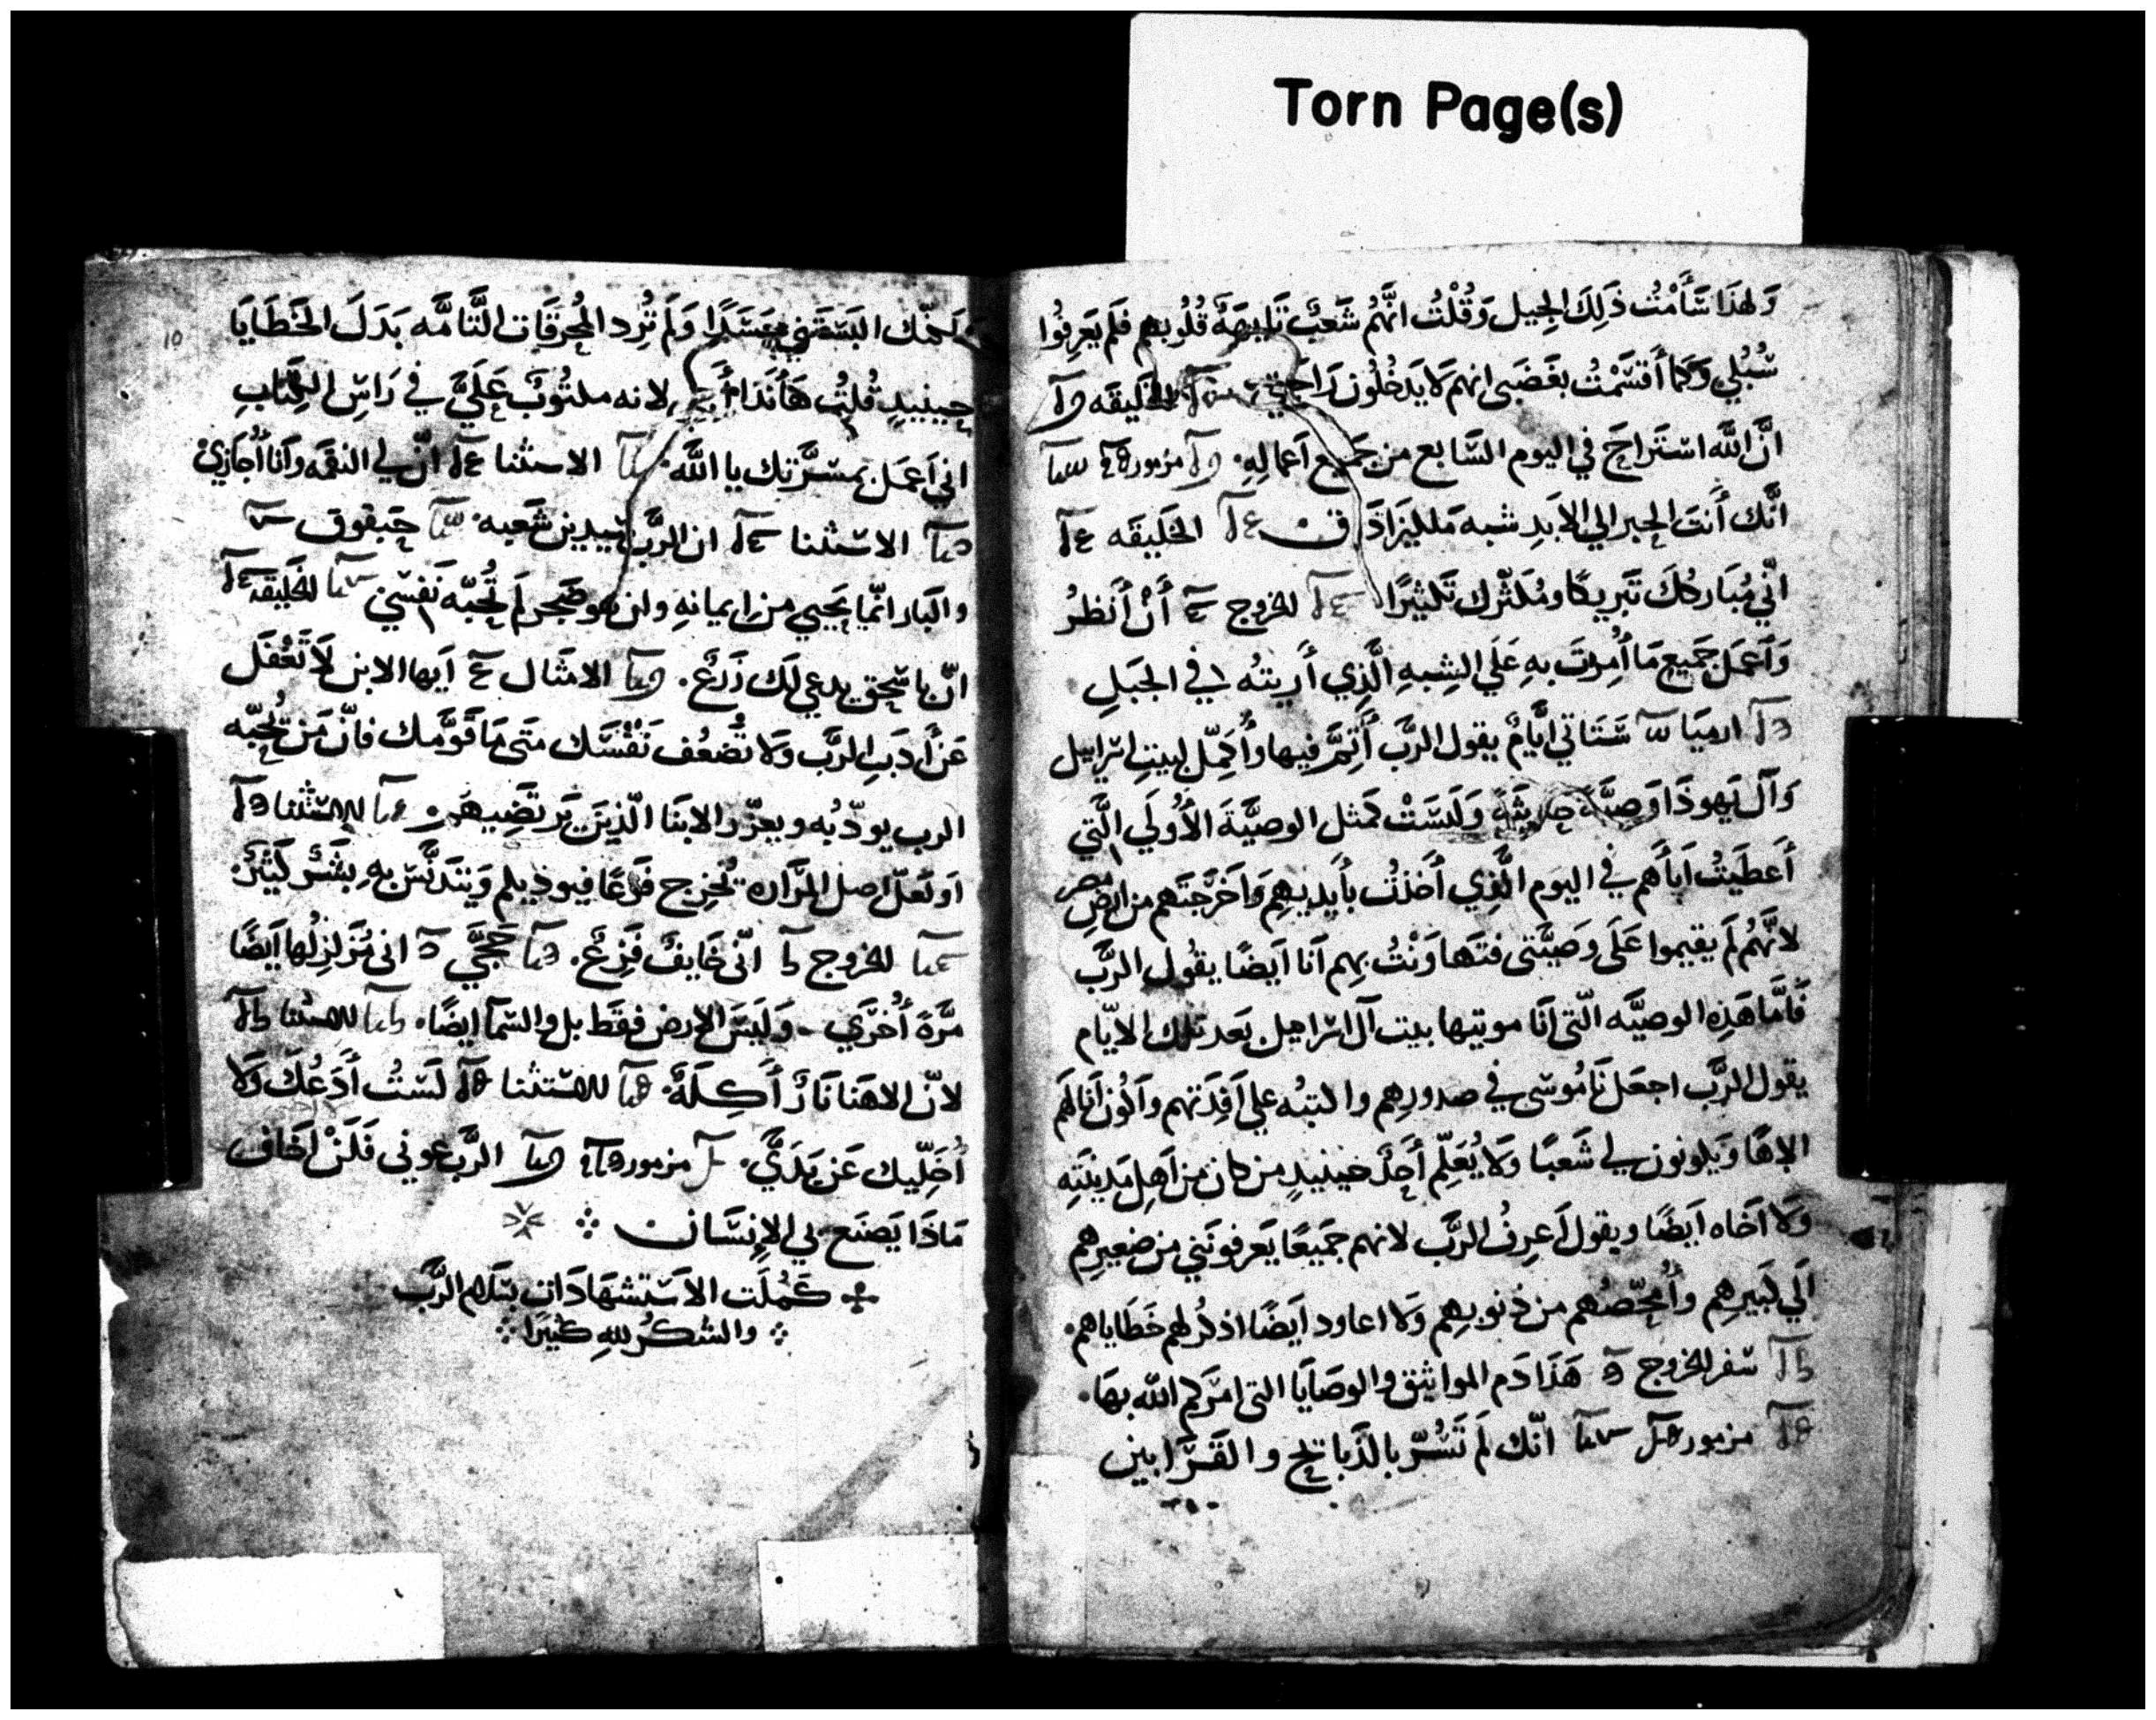 Torn Page(s)
وَلهَذَا سَأَمْتُ ذَلِكَ الجِيل وَقُلْتُ انَّهُم شَعْبٌ تَايِهَةٌ قُلُوبهم فلَم يَعرِفُوا
سُبُلي وَكَما أَقسَمْتُ بغَضَبى انهم لَا يَدخُلُون رَاحتي الخَليقَه
انَّ اللَّه استَراحَ في اليوم السَّابع من جَميع اَعمالِهِ مزمور
انَّك أَنتَ الحبر الي الابَدِ شبه مَلليزَادَاق الخَليقَه
انّي مُبَاركُكَ تَبريكًا ومُكَثّرك تَكثيرًا الخروج أَنْ أَنظرُ
وَاَعمَل جَميع مَا أُمِرتَ بِهِ عَلَي الشِبهِ الَّذِي أُريتُه في الجَبَلِ
ارميَا سَتَاتي ايَّامٌ يقول الرَّب أُتِمُّ فيها وأُكمِّل لبيتِ اسرَاييل
وَآل يَهوذَا وَصِيَّةً حَديثَةً وَلَيسَتْ كمثل الوصيَّةَ الأُولَي الَّتي
أَعطَيتُ اَبآهم في اليَوم الَّذِي أَخَذتُ بأَيديهِم وَاَخرَجتَهم من ارض مصر
لانَّهُم لَم يقيموا عَلَى وَصيَّتى فتَهاوَنْتُ بِهم اَنا اَيضًا يقُول الرَّب
فَامَّا هَذِهِ الوصيَّه الّتى اَنَا موتيها بيت آل اسراييل بَعد تلك الايّام
يقول الرَّب اجعَل نَامُوسَى في صدورهِم واكتبُه علي اَفئِدَتهم وَاَكُون اَنا لهَم
الاهًا وَيكونون لي شَعبًا وَلَا يُعَلِّم أَحَدٌ حينيدٍ من كان من اَهل مَدينَتِه
وَلَا اَخَاه اَيضًا ويقول اَعرِفُ الرَّب لانهم جَميعًا يَعرفونَني من صَغيرِهم
اَلَي كَبيرهِم وأُمحِّصُهم من ذنوبهِم وَلَا اعاود اَيضًا اذكُر لهم خَطَاياهم
سفر الخروج هَذَا دَم المواثيق والوصَايَا التى امرَكم اللّه بهَا
مزمور انّك لَم تُسَرّ بالذَّبايح والقَرَابين
10
لَكنّك البَستَني جَسَدًا وَلَم تُرِد المُحرقَات التَّامَّه بَدَلَ الخَطَايَا
حينيدٍ قُلتُ هَأَنَذَا لانه مكتُوبٌ عَلَيَّ في رَاسِ الكِتَابِ
اني اَعمَل بمسَرَّتك يا اللَّه الاستثنا انّ لي النقمَه وَاَنا أُجَازِيْ
الاستثنا ان الرَّب يَدين شَعبه حَبقوق
والبَار انَّما يَحيي من ايمانهِ وان هو ضَجر لَم تُحبّه نَفسْي الخَليقَه
انّ باسحق يدعي لَك زَرعٌ الامثَال اَيها الابن لَا تَغفَل
عَن أَدَبِ الرَّب وَلَا تَضعُف نَفْسَك مَتَى مَا قَوَّمك فانّ مَن يُحِبّه
الرب يودّبُه ويعزّر الابنَا الّذينَ يَرتَضِيهم الاستثنا
او لَعلّ اصل المَرَاره تُخرِج فَرعًا فيوذيكم وَيَتدنَّس بِهِ بشَر كَثيرٌ
الخروج انّى خَايفٌ فَزِعٌ حَجَّي انى مُزَلزِلُها اَيضًا
مَرَّةً أُخرَي وَلَيسَ الارض فقَط بل والسَّمآ ايضًا الاستثنا
لانّ الاهَنا نَارٌ أَكِلَةٌ الاستثنا لَستُ أَدَعُكَ وَلَا
أُخَلِّيك عَن يَدَيَّ مزمور الرَّب عوني فَلَنْ اَخاف
مَاذَا يَصنَع بي الإنسَان
كَمُلَت الاَستشهَادَات بسَلام الرَّب
والشكرُ للهِ كثيرًا